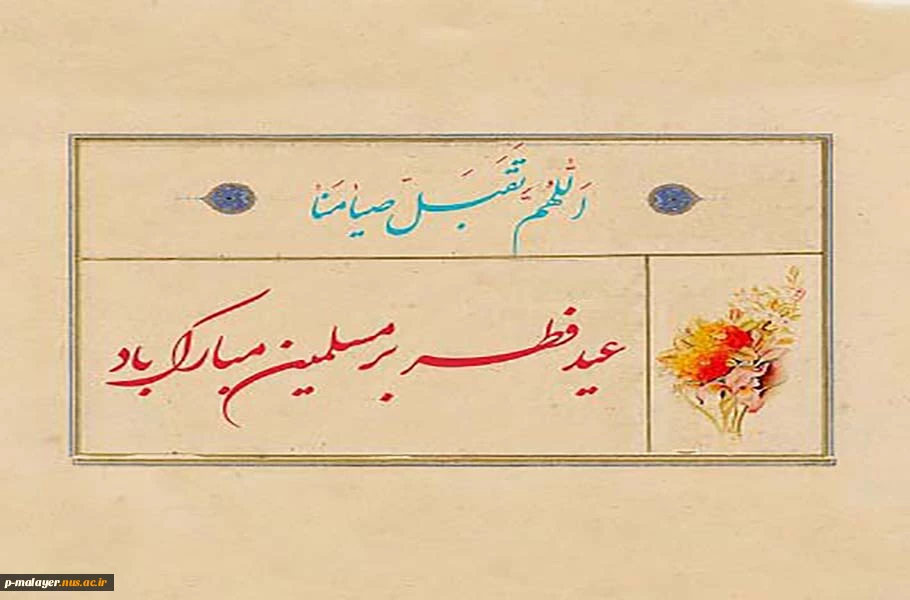 اَللّهُمَّ تَقَبَّل صیامَنا
عید فطر بر مسلمین مبارک باد
p-malayer.nus.ac.ir